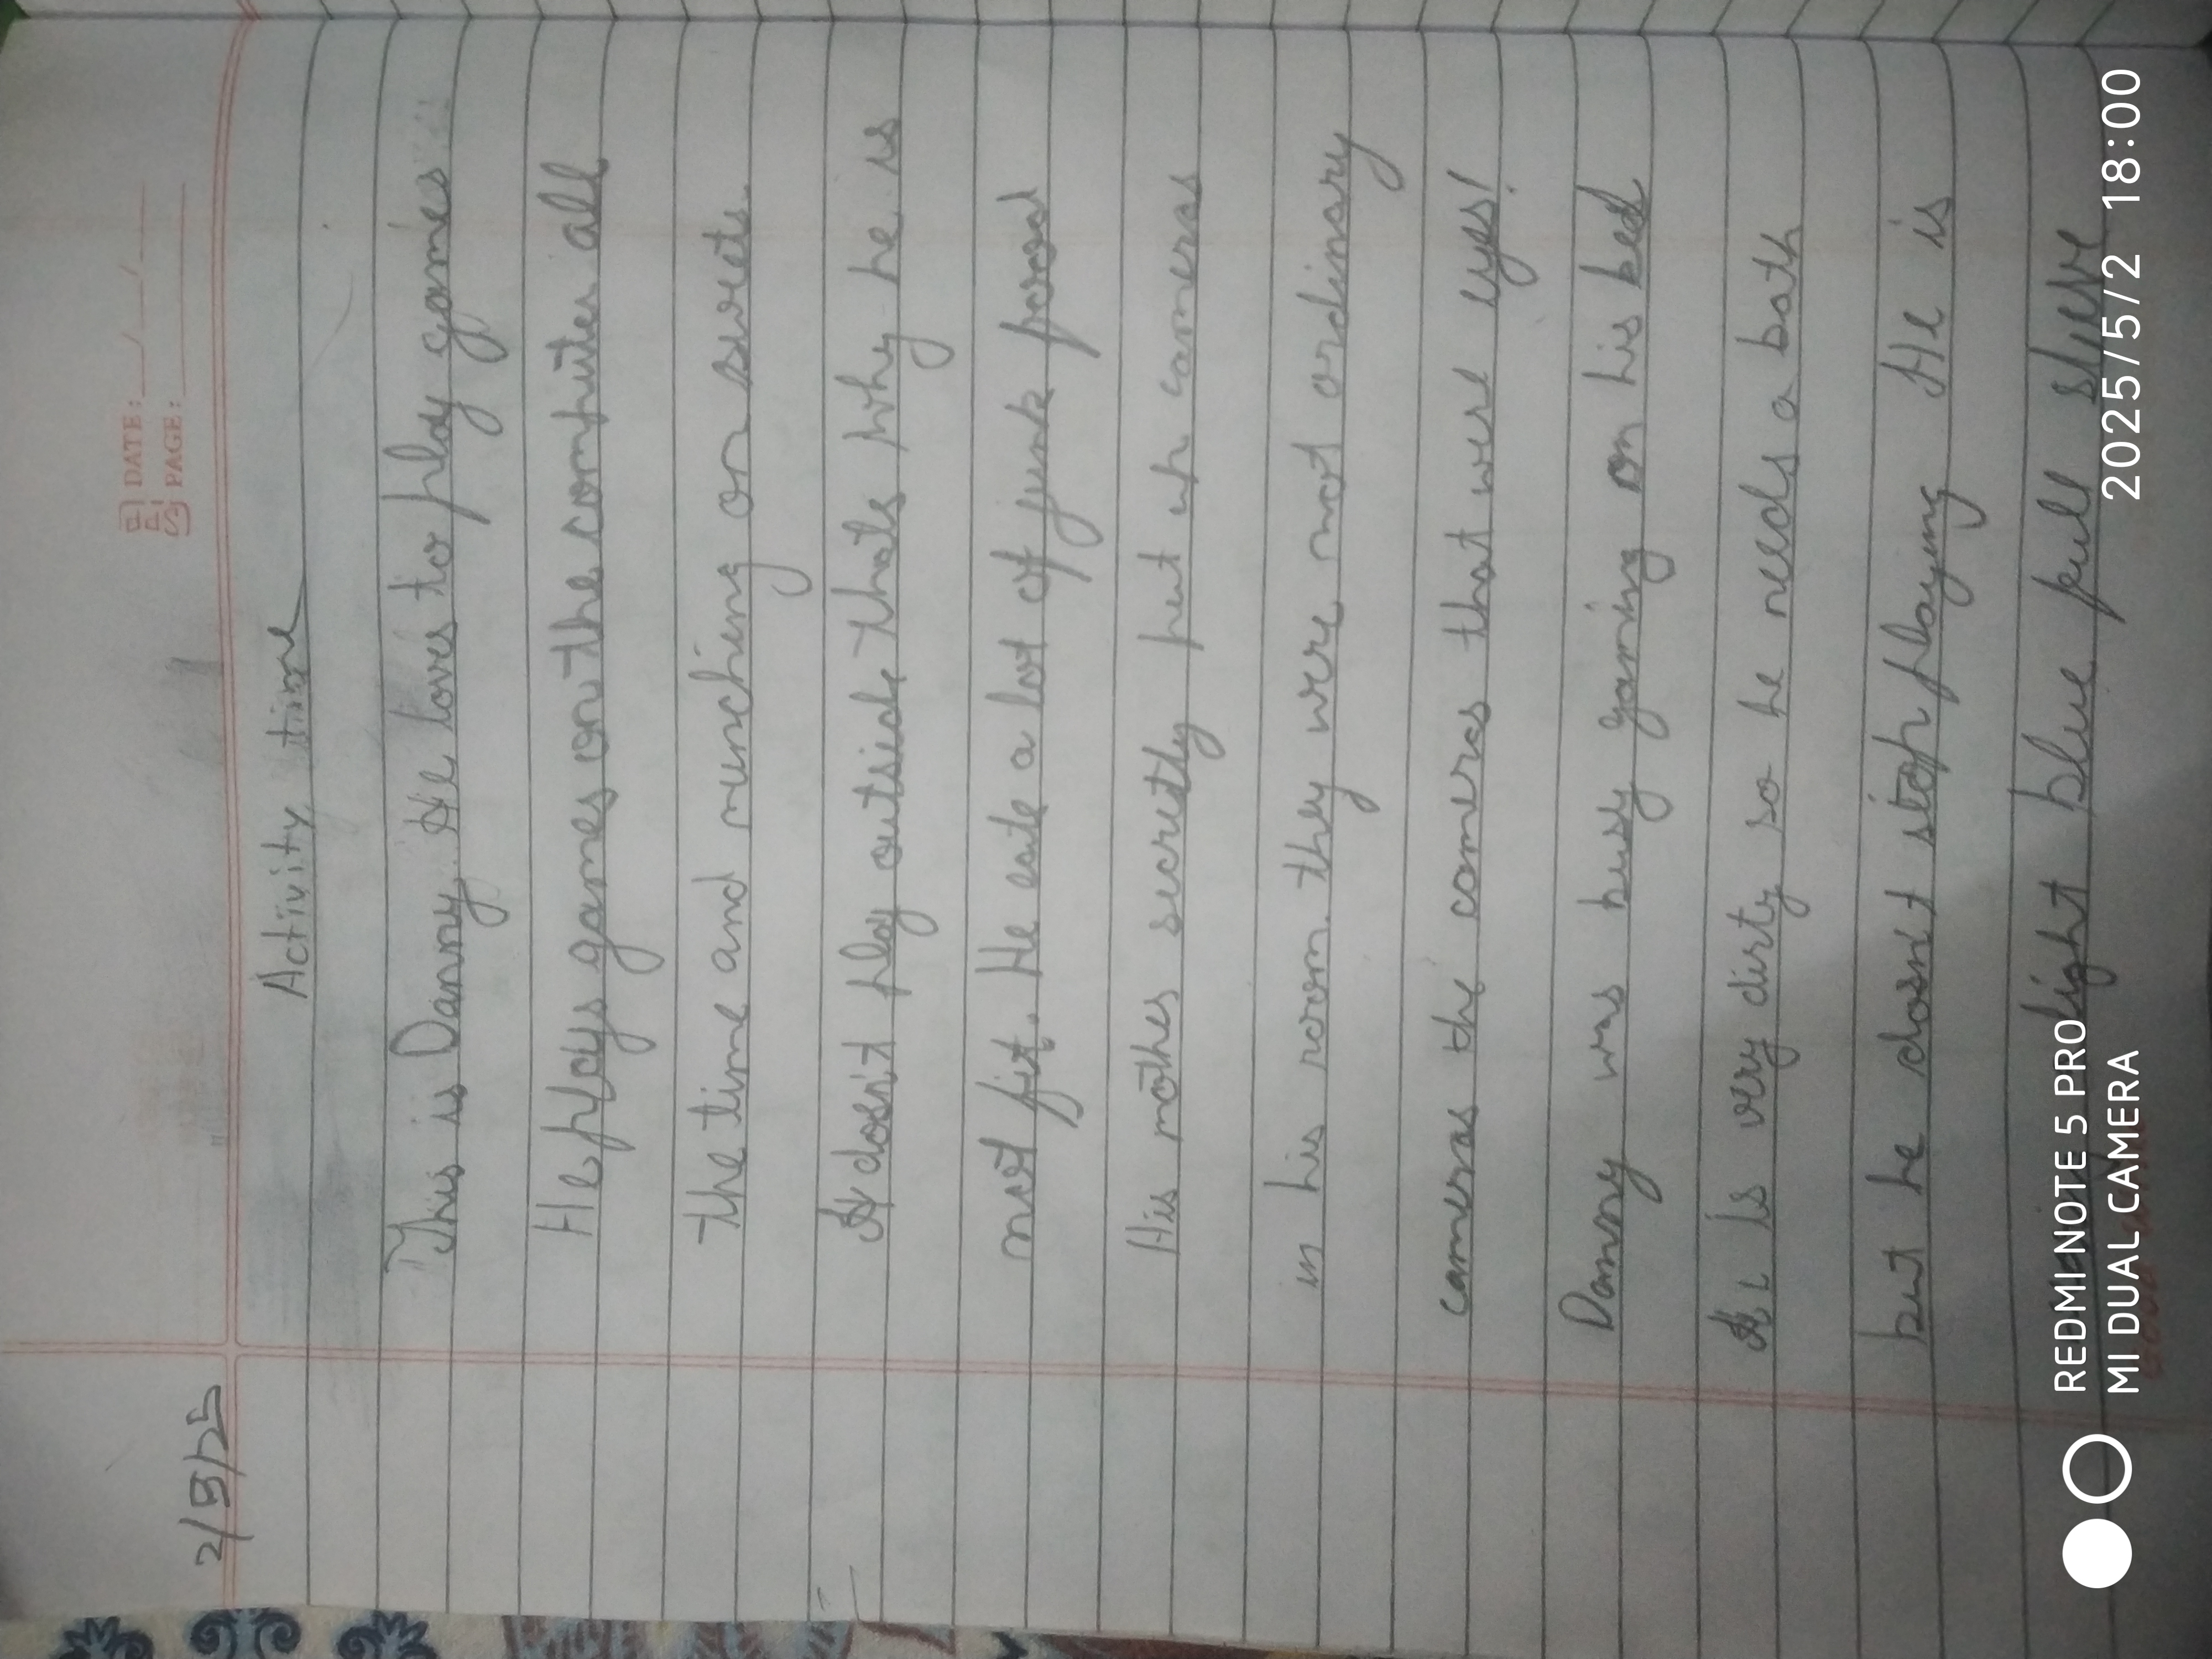 2/5/25
DATE: __/__/__
PAGE:
Activity time
This is Danny. He loves to play games
He plays games on the computer all
the time and munching on sweets.
dosn't play outside thats why he is
not fit. He eate a lot of junk
His mother secretly put up cameras
in his room. they were not ordinary
cameras the cameras that were eyes!
Danny was busy gaming on his bed
Is very dirty so he needs a bath
but he dosn't stop playing He is
light blue full
REDMI NOTE 5 PRO
MI DUAL CAMERA
2025/5/2 18:00